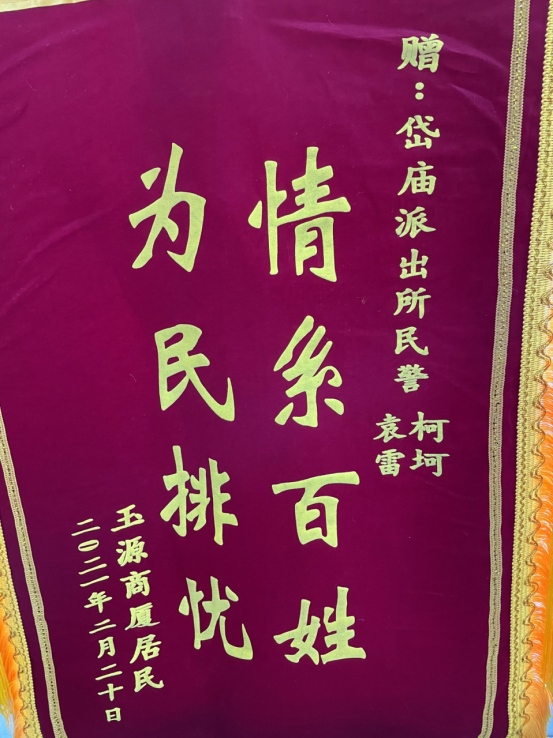 赠：岱庙派出所民警
柯坷
袁雷
情系百姓
为民排忧
玉源商厦居民
二〇二一年二月二十日